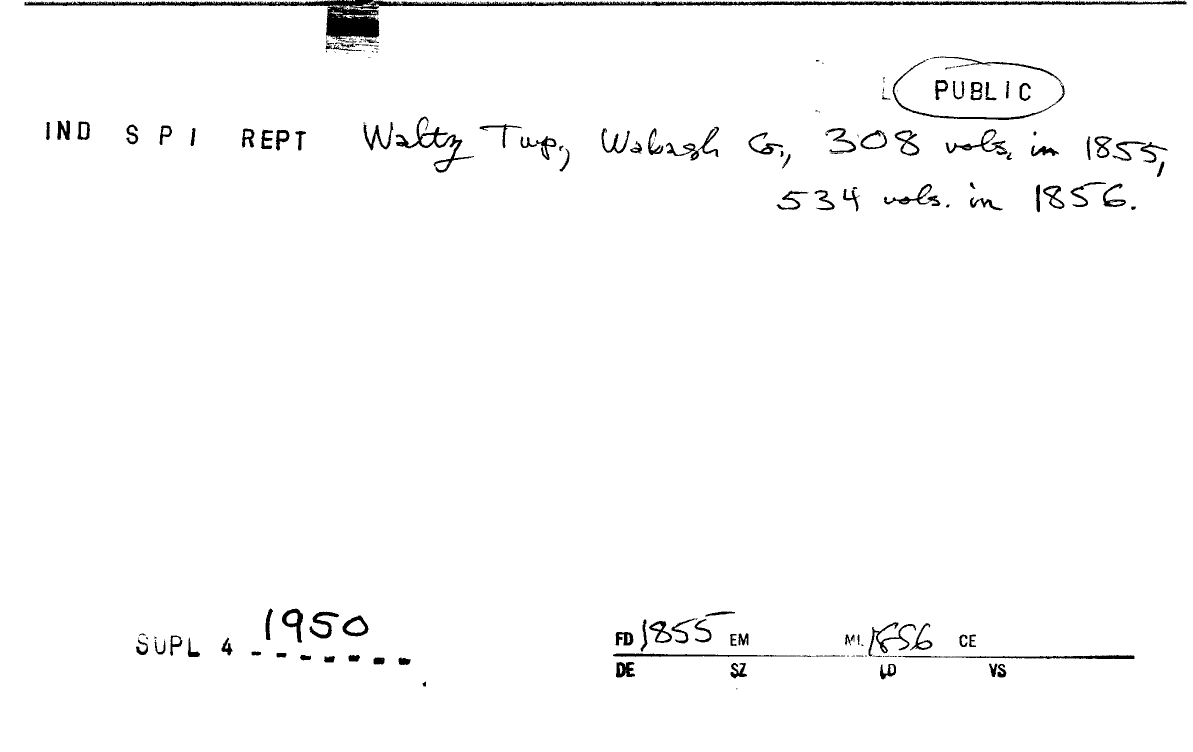 PUBLIC
IND S P I REPT Waltz Twp., Wabash Co., 308 vols. in 1855,
534 vols. in 1856.
SUPL 4 1950
FD 1855 EM MI. 1856 CE
DE SZ LD VS